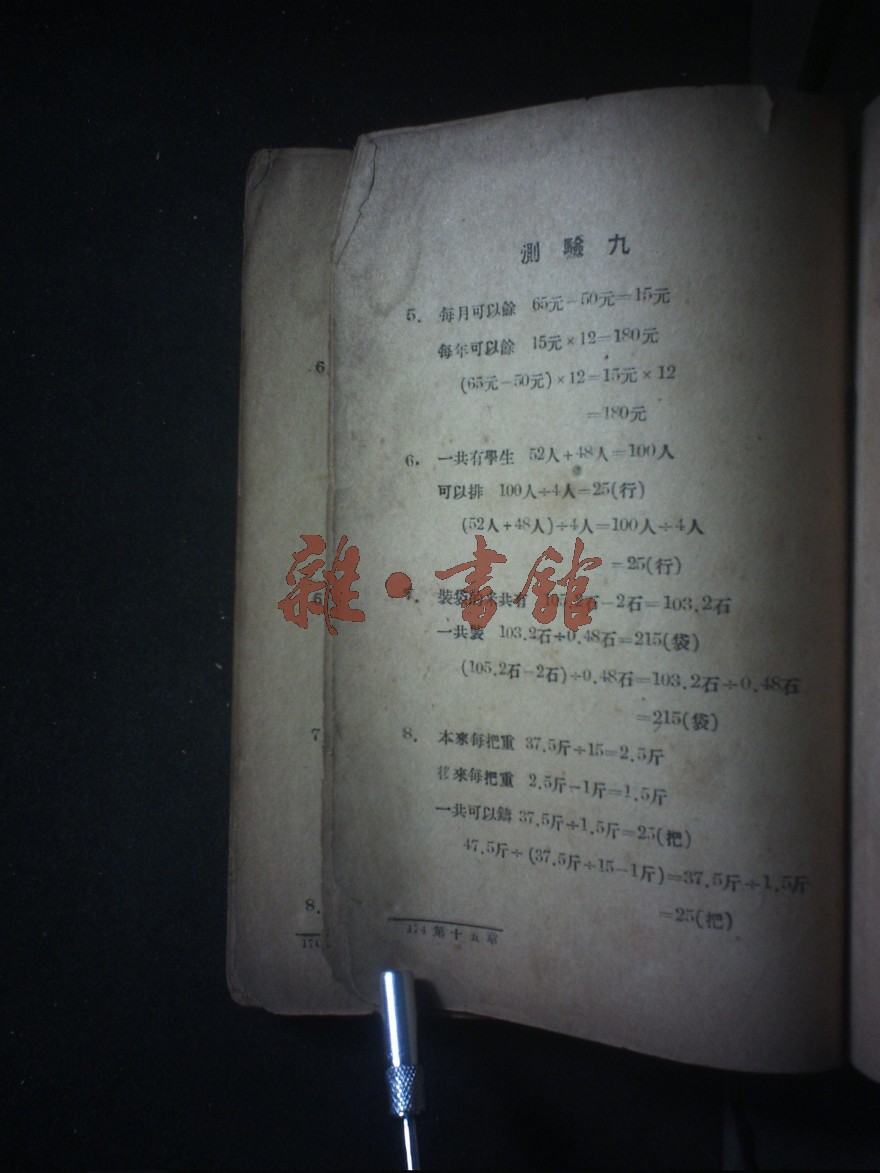 測驗九
5. 每月可以餘 65元-50元=15元
每年可以餘 15元×12=180元
(65元-50元)×12=15元×12
=180元
6. 一共有學生 52人+48人=100人
可以排 100人÷4人=25(行)
(52人+48人)÷4人=100人÷4人
=25(行)
裝袋的米共有 105.2石-2石=103.2石
一共裝 103.2石÷0.48石=215(袋)
(105.2石-2石)÷0.48石=103.2石÷0.48石
=215(袋)
8. 本來每把重 37.5斤÷15=2.5斤
來每把重 2.5斤-1斤=1.5斤
一共可以鑄 37.5斤÷1.5斤=25(把)
47.5斤÷(37.5斤÷15-1斤)=37.5斤÷1.5斤
=25(把)
174 第十五章
6
6
7
8.
174
雜·書館